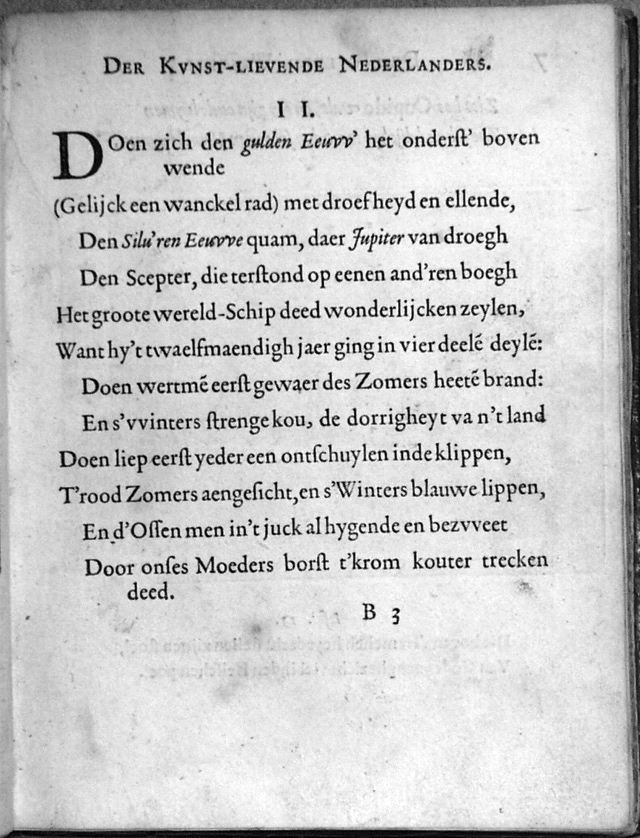 DER KVNST-LIEVENDE NEDERLANDERS.
I I.
DOen zich den gulden Eeuvv' het onderſt' boven
wende
(Gelijck een wanckel rad) met droefheyd en ellende,
Den Silu'ren Eeuvve quam, daer Jupiter van droegh
Den Scepter, die terſtond op eenen and'ren boegh
Het groote wereld-Schip deed wonderlijcken zeylen,
Want hy't twaelfmaendigh jaer ging in vier deelē deylē:
Doen wertmē eerſt gewaer des Zomers heetē brand:
En s'vvinters ſtrenge kou, de dorrigheyt va n't land
Doen liep eerſt yeder een ontſchuylen inde klippen,
T'rood Zomers aengeſicht, en s'Winters blauwe lippen,
En d'Oſſen men in't juck al hygende en bezvveet
Door onſes Moeders borſt t'krom kouter trecken
deed.
B 3